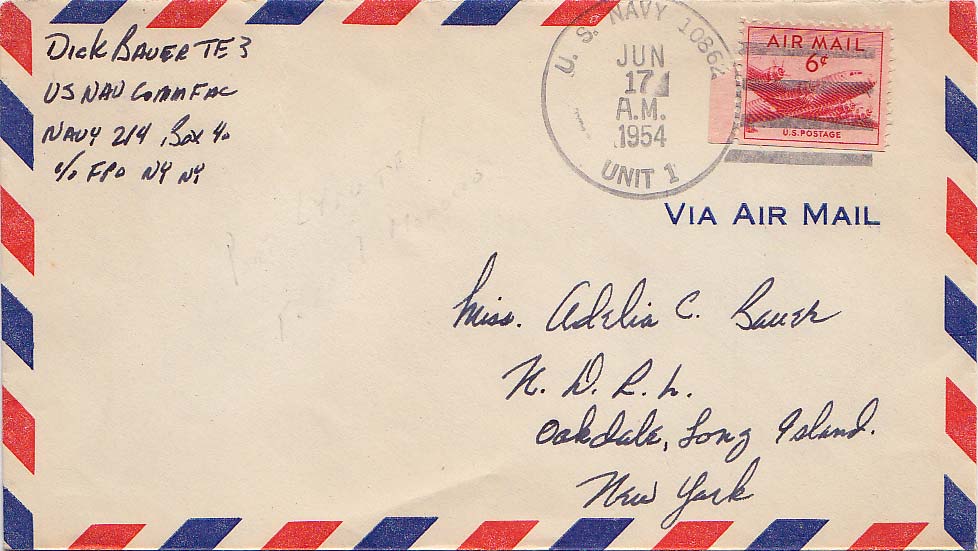 Dick Bauer TE3
US NAV COMMFAC
NAVY 214, Box 40
c/o FPO NY NY
U. S. NAVY 10862
JUN
17
A.M.
1954
UNIT 1
AIR MAIL
6¢
U.S. POSTAGE
VIA AIR MAIL
Miss. Adelia C. Bauer
N. D. R. L.
Oakdale, Long Island.
New York